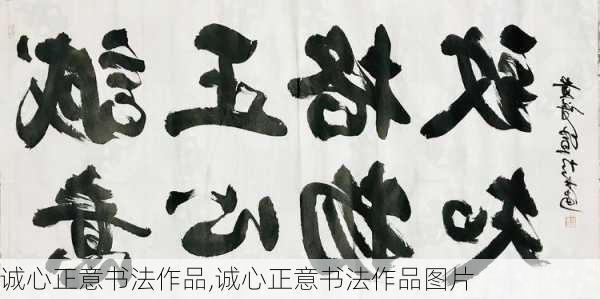 誠意
正心
格物
致知
诚心正意书法作品,诚心正意书法作品图片